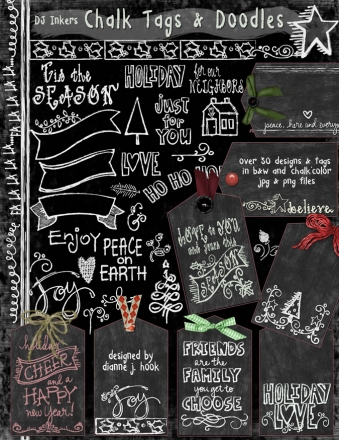 DJ Inkers Chalk Tags & Doodles
'tis the
SEASON
HOLIDAY
for our
NEIGHBORS
just
for
YOU
peace, here and everyw
LOVE
HO HO HO
over 50 designs & tags
in b&w and chalkcolor
jpg & png files
believe
ENJOY
PEACE
on
EARTH
Love to you
SEASON
Joy
holiday
CHEER
and a
HAPPY
new year!
designed by
dianne j. hook
Joy
FRIENDS
are the
FAMILY
you get to
CHOOSE
HOLIDAY
LOVE